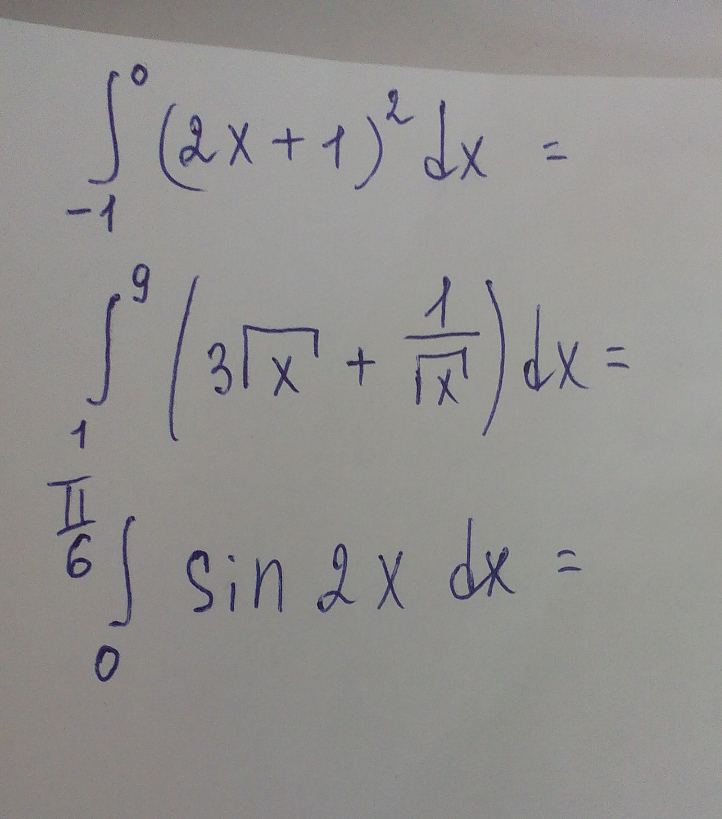 ∫₋₁⁰ (2x + 1)² dx =
∫₁⁹ (3√x + 1/√x) dx =
∫₀^(π/6) sin 2x dx =